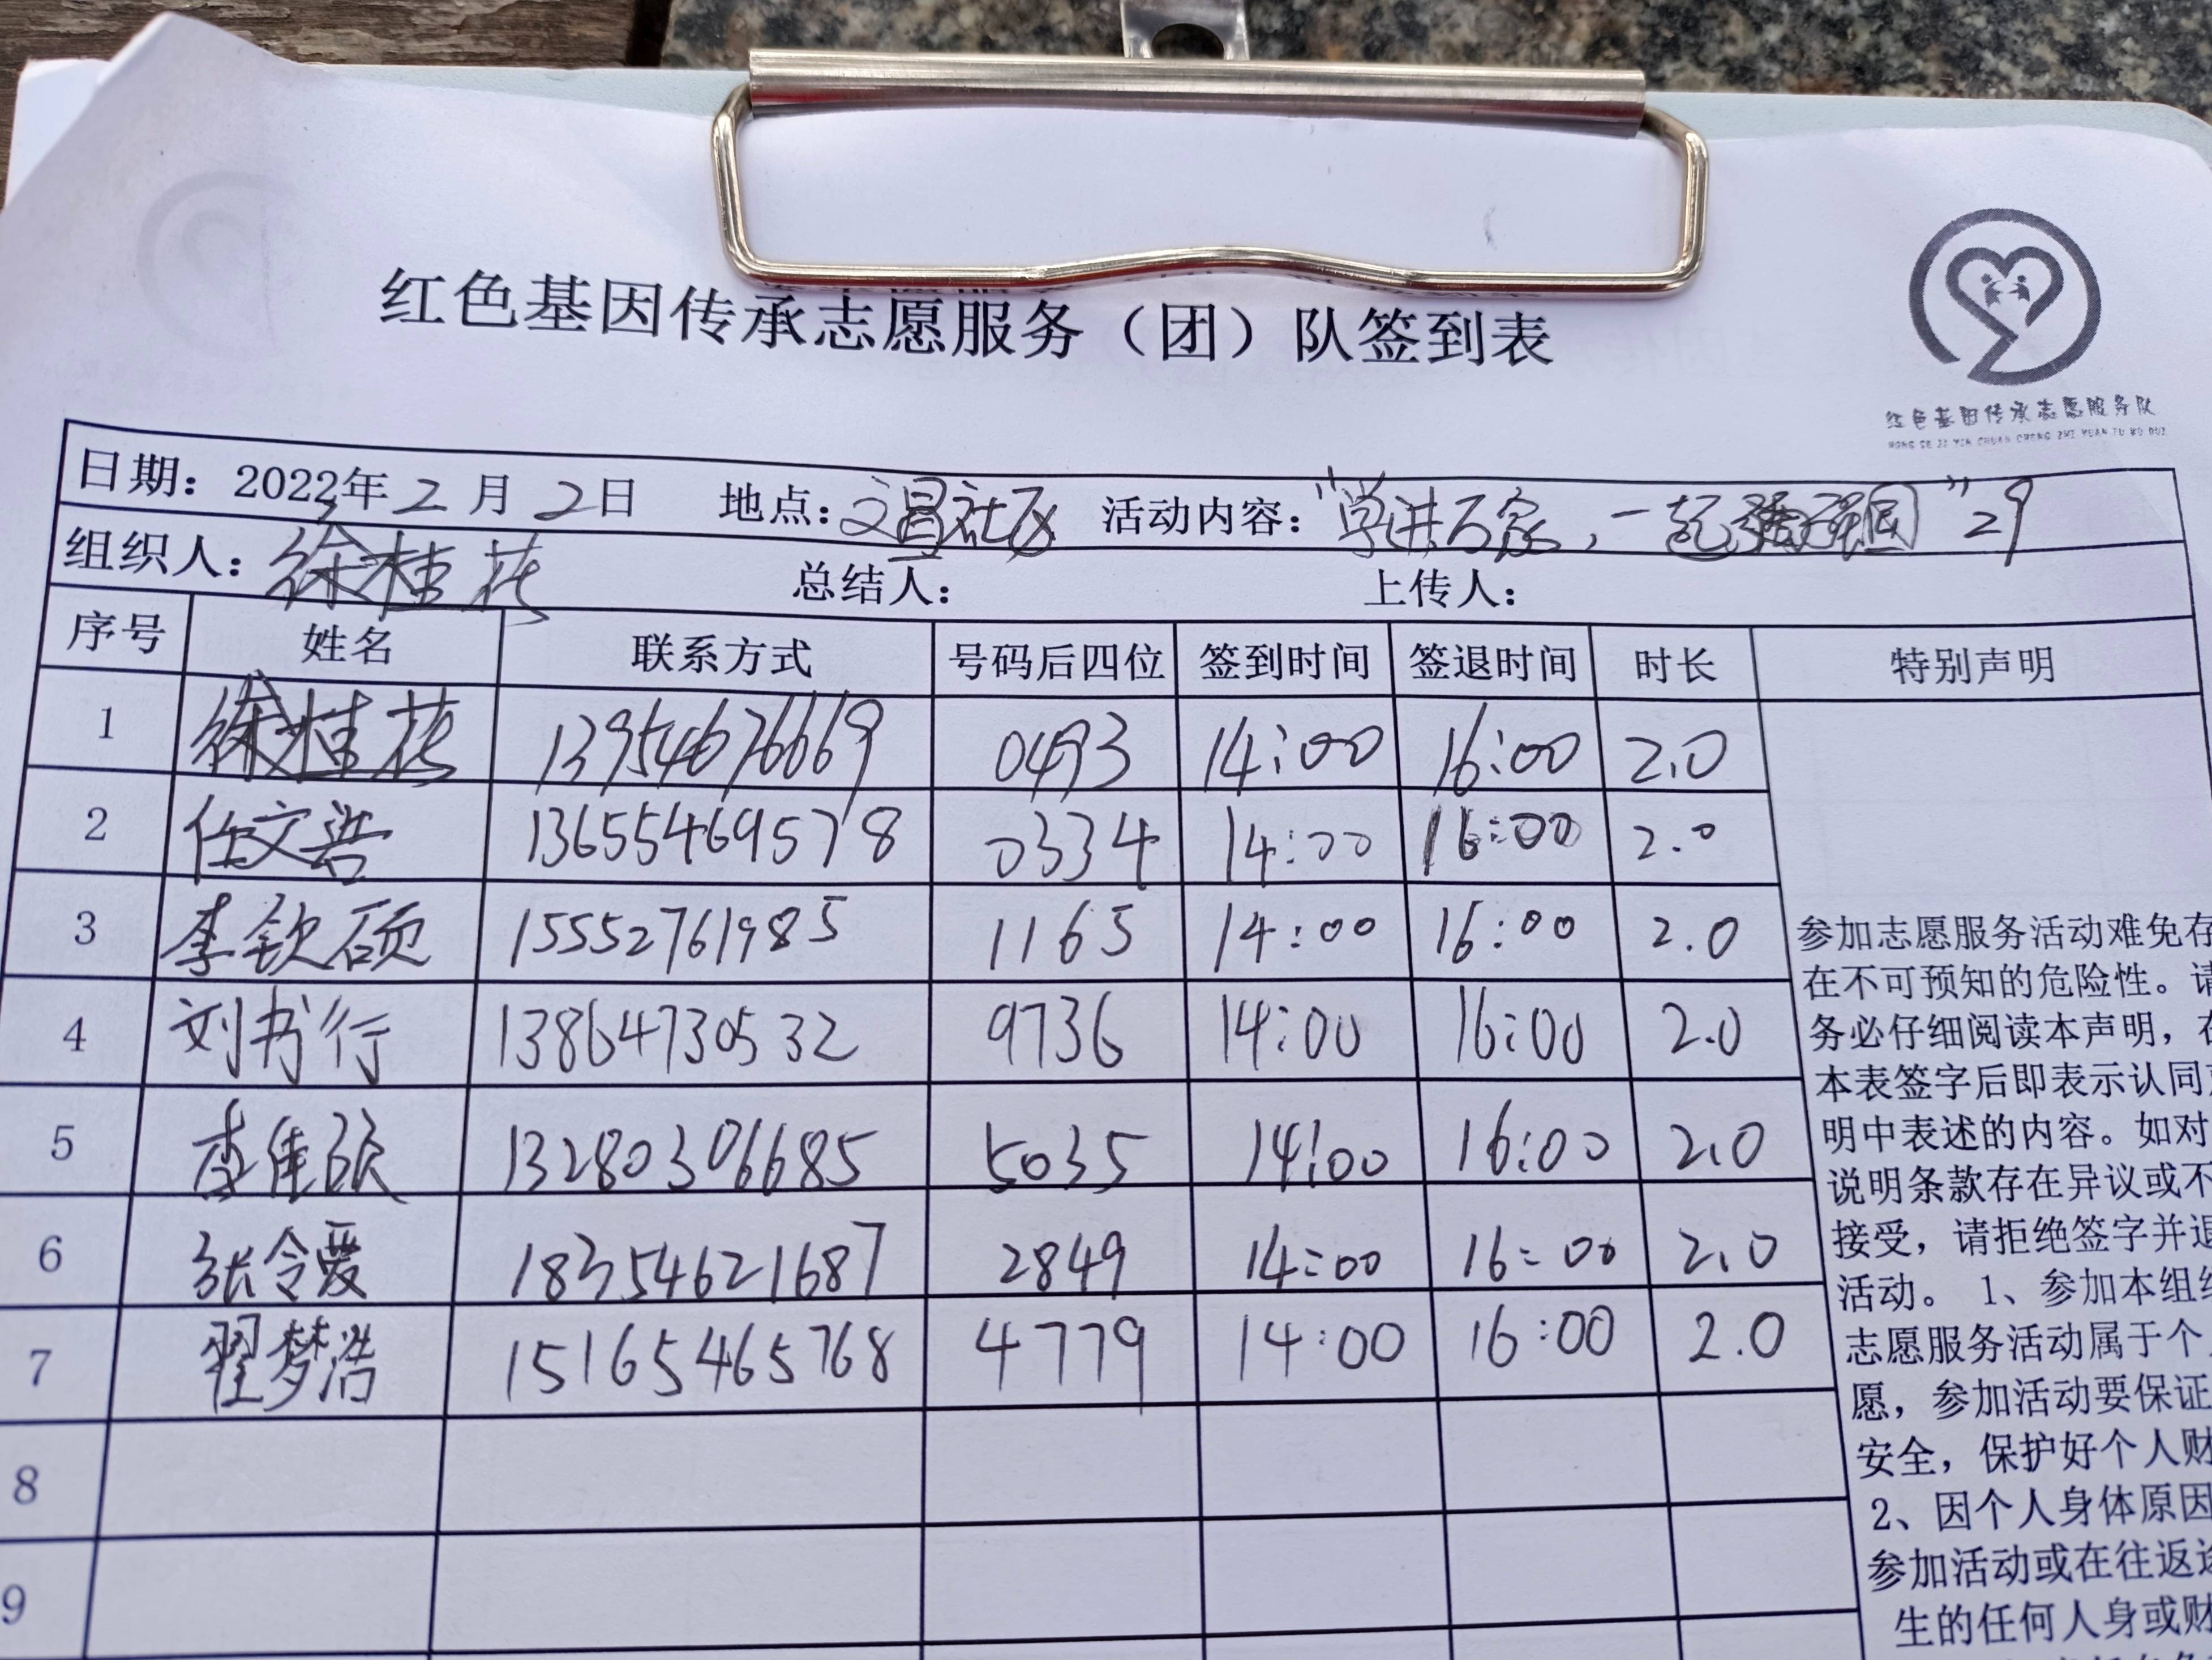 红色基因传承志愿服务（团）队签到表
红色基因传承志愿服务队
HONG SE JI YIN CHUAN CHENG ZHI YUAN FU WU DUI
日期：2022年2月2日 地点：文昌社区 活动内容：“学进万家，一起强国”29
组织人：徐桂花 总结人： 上传人：
序号 姓名 联系方式 号码后四位 签到时间 签退时间 时长 特别声明
1 徐桂花 13954676669 0493 14:00 16:00 2.0
2 任文浩 13655469578 0334 14:00 16:00 2.0
3 李钦硕 15552761985 1165 14:00 16:00 2.0
4 刘书行 13864730532 9736 14:00 16:00 2.0
5 李佳 13280306685 5035 14:00 16:00 2.0
6 张令爱 18354621687 2849 14:00 16:00 2.0
7 翟梦浩 15165465768 4779 14:00 16:00 2.0
8
9
参加志愿服务活动难免存
在不可预知的危险性。请
务必仔细阅读本声明，在
本表签字后即表示认同
明中表述的内容。如对
说明条款存在异议或不
接受，请拒绝签字并退
活动。 1、参加本组织
志愿服务活动属于个人
愿，参加活动要保证
安全，保护好个人财
2、因个人身体原因
参加活动或在往返途
生的任何人身或财